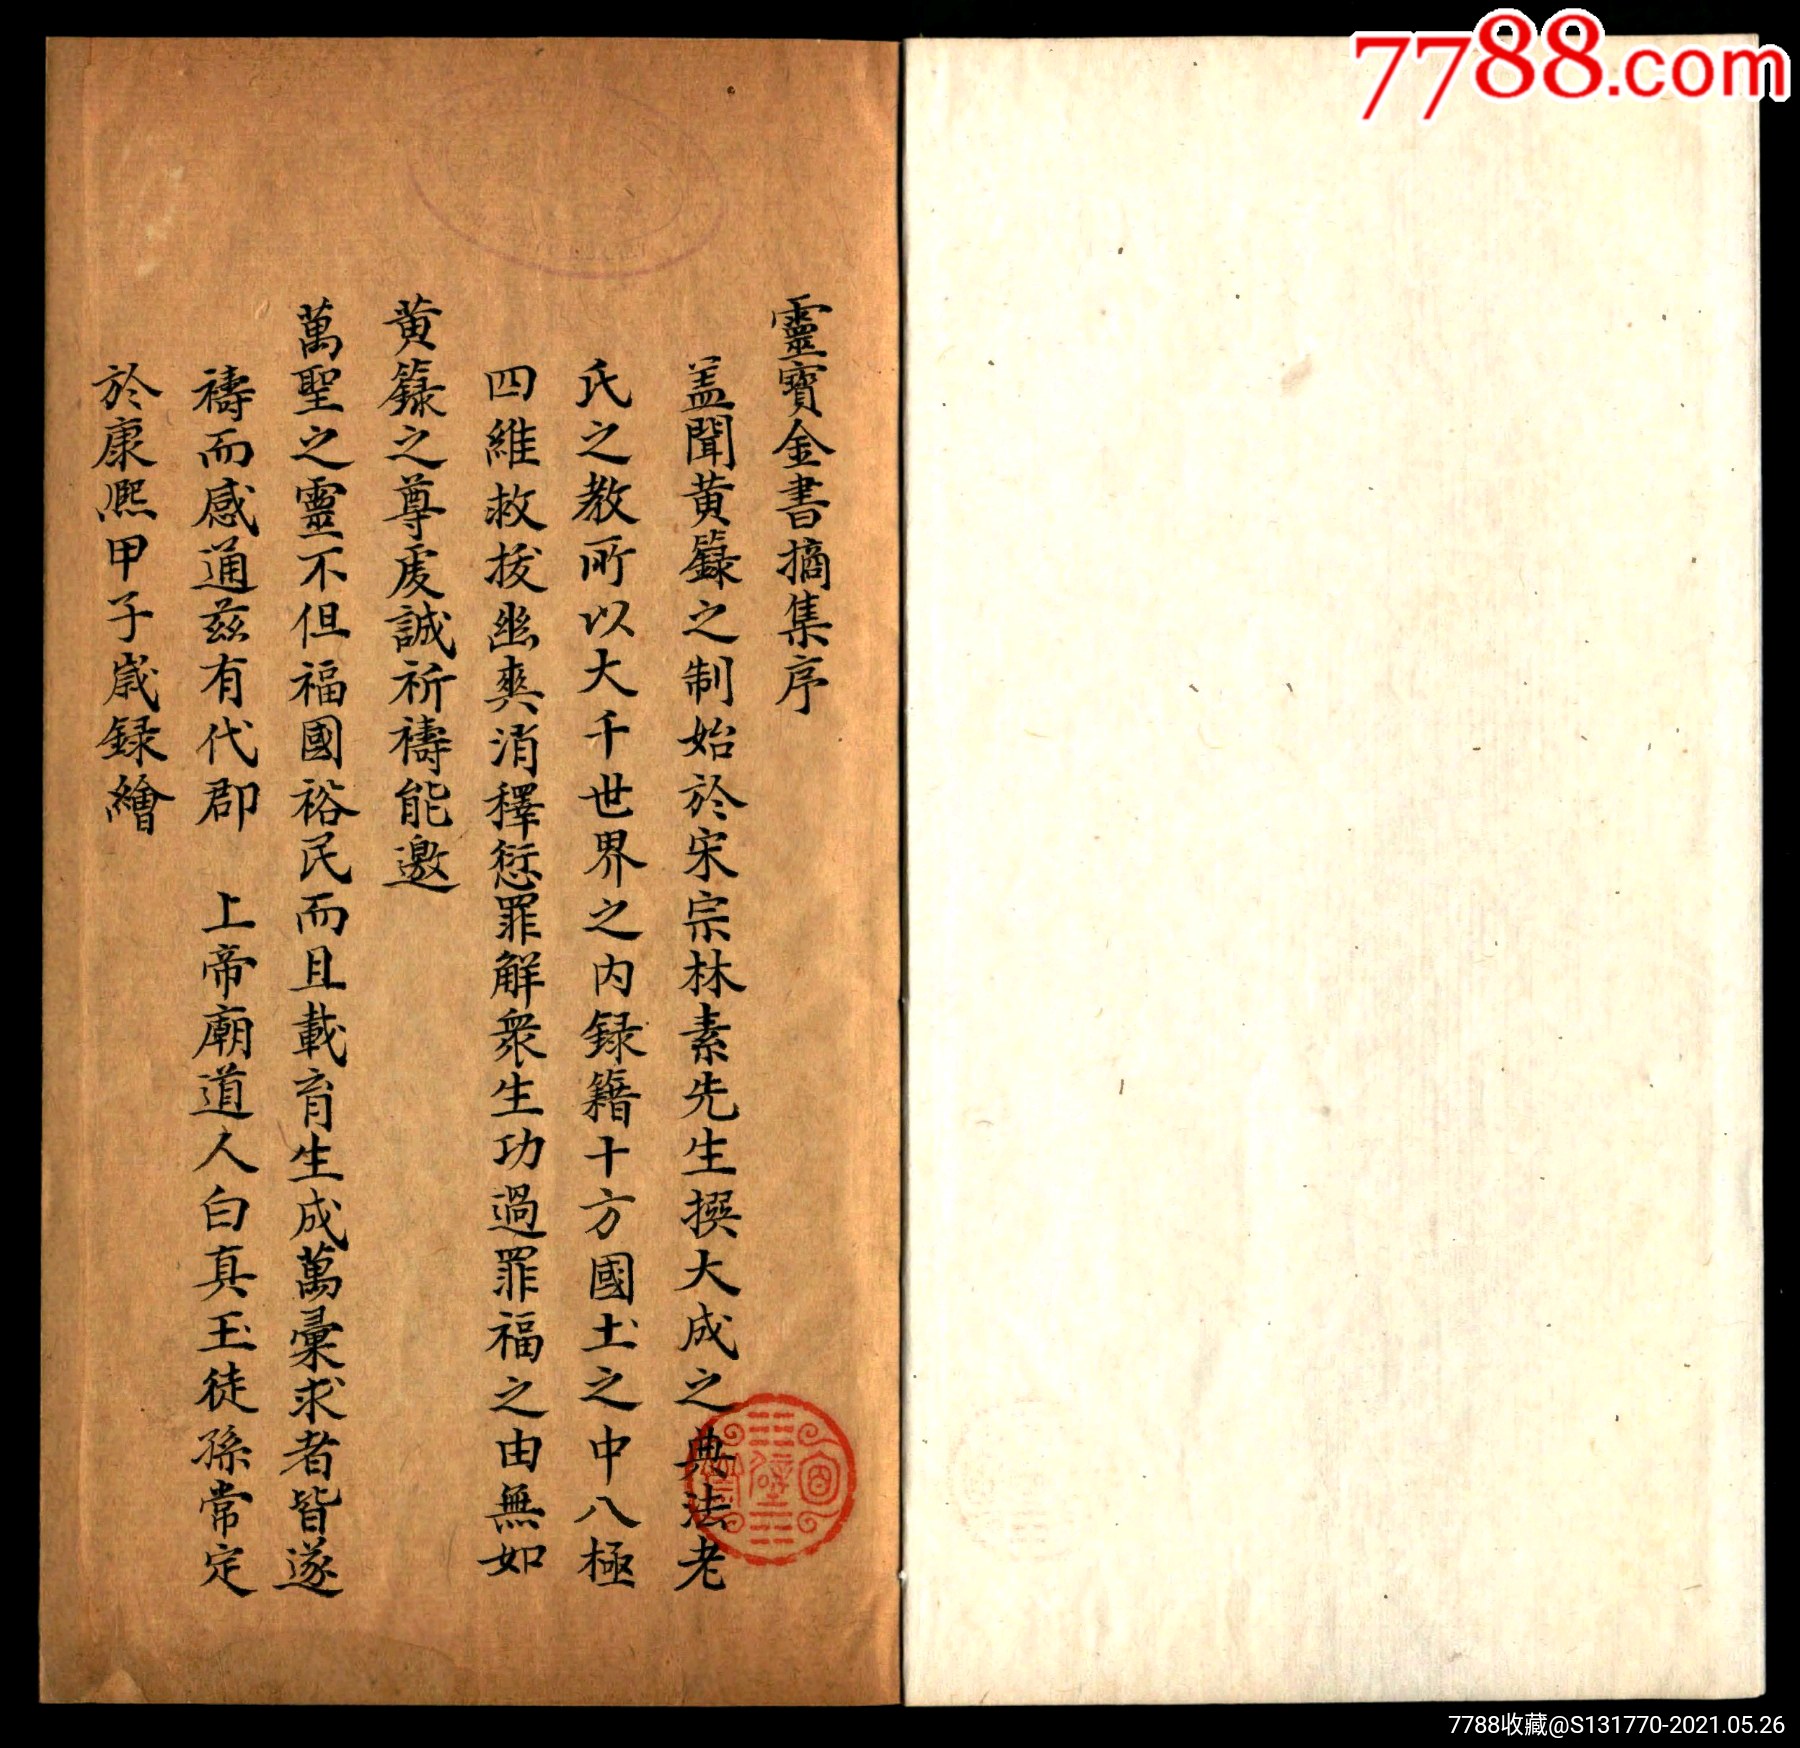 7788.com
靈寳金書摘集序
盖聞黄籙之制始於宋宗林素先生撰大成之典法老
氏之教所以大千世界之内録籍十方國土之中八極
四維救拔幽爽消釋愆罪解衆生功過罪福之由無如
黄籙之尊虔誠祈禱能邀
萬聖之靈不但福國裕民而且載育生成萬彙求者皆遂
禱而感通兹有代郡 上帝廟道人白真玉徒孫常定
於康熙甲子歲録繪
7788收藏@S131770-2021.05.26